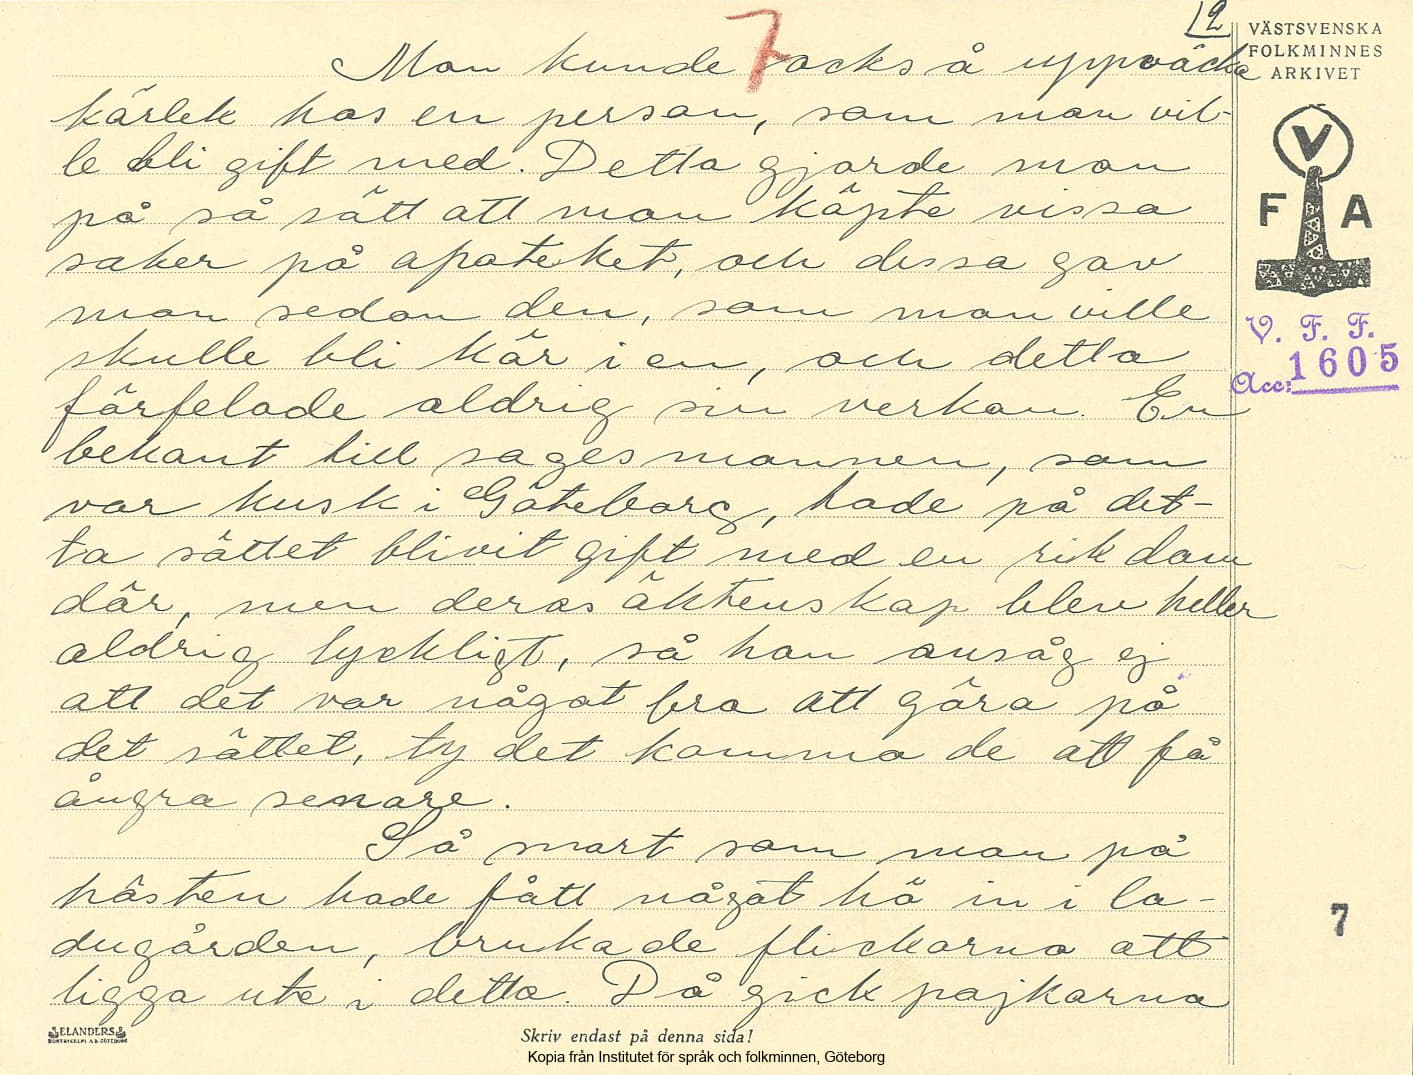 12
7
VÄSTSVENSKA
FOLKMINNES
ARKIVET
V
F A
V. F. F.
Acc: 1605
Man kunde också uppväcka
kärlek hos en person, som man vil-
le bli gift med. Detta gjorde man
på så sätt att man köpte vissa
saker på apoteket, och dessa gav
man sedan den, som man ville
skulle bli kär i en, och detta
förfelade aldrig sin verkan. En
bekant till sagesmannen, som
var kusk i Göteborg, hade på det-
ta sättet blivit gift med en rik dam
där, men deras äktenskap blev heller
aldrig lyckligt, så han ansåg ej
att det var något bra att göra på
det sättet, ty det komma de att få
ångra senare.
Så snart som man på
hösten hade fått något hö in i la-
dugården, brukade flickorna att
ligga ute i detta. Då gick pojkarna
7
ELANDERS
BOKTRYCKERI A.B. GÖTEBORG
Skriv endast på denna sida!
Kopia från Institutet för språk och folkminnen, Göteborg